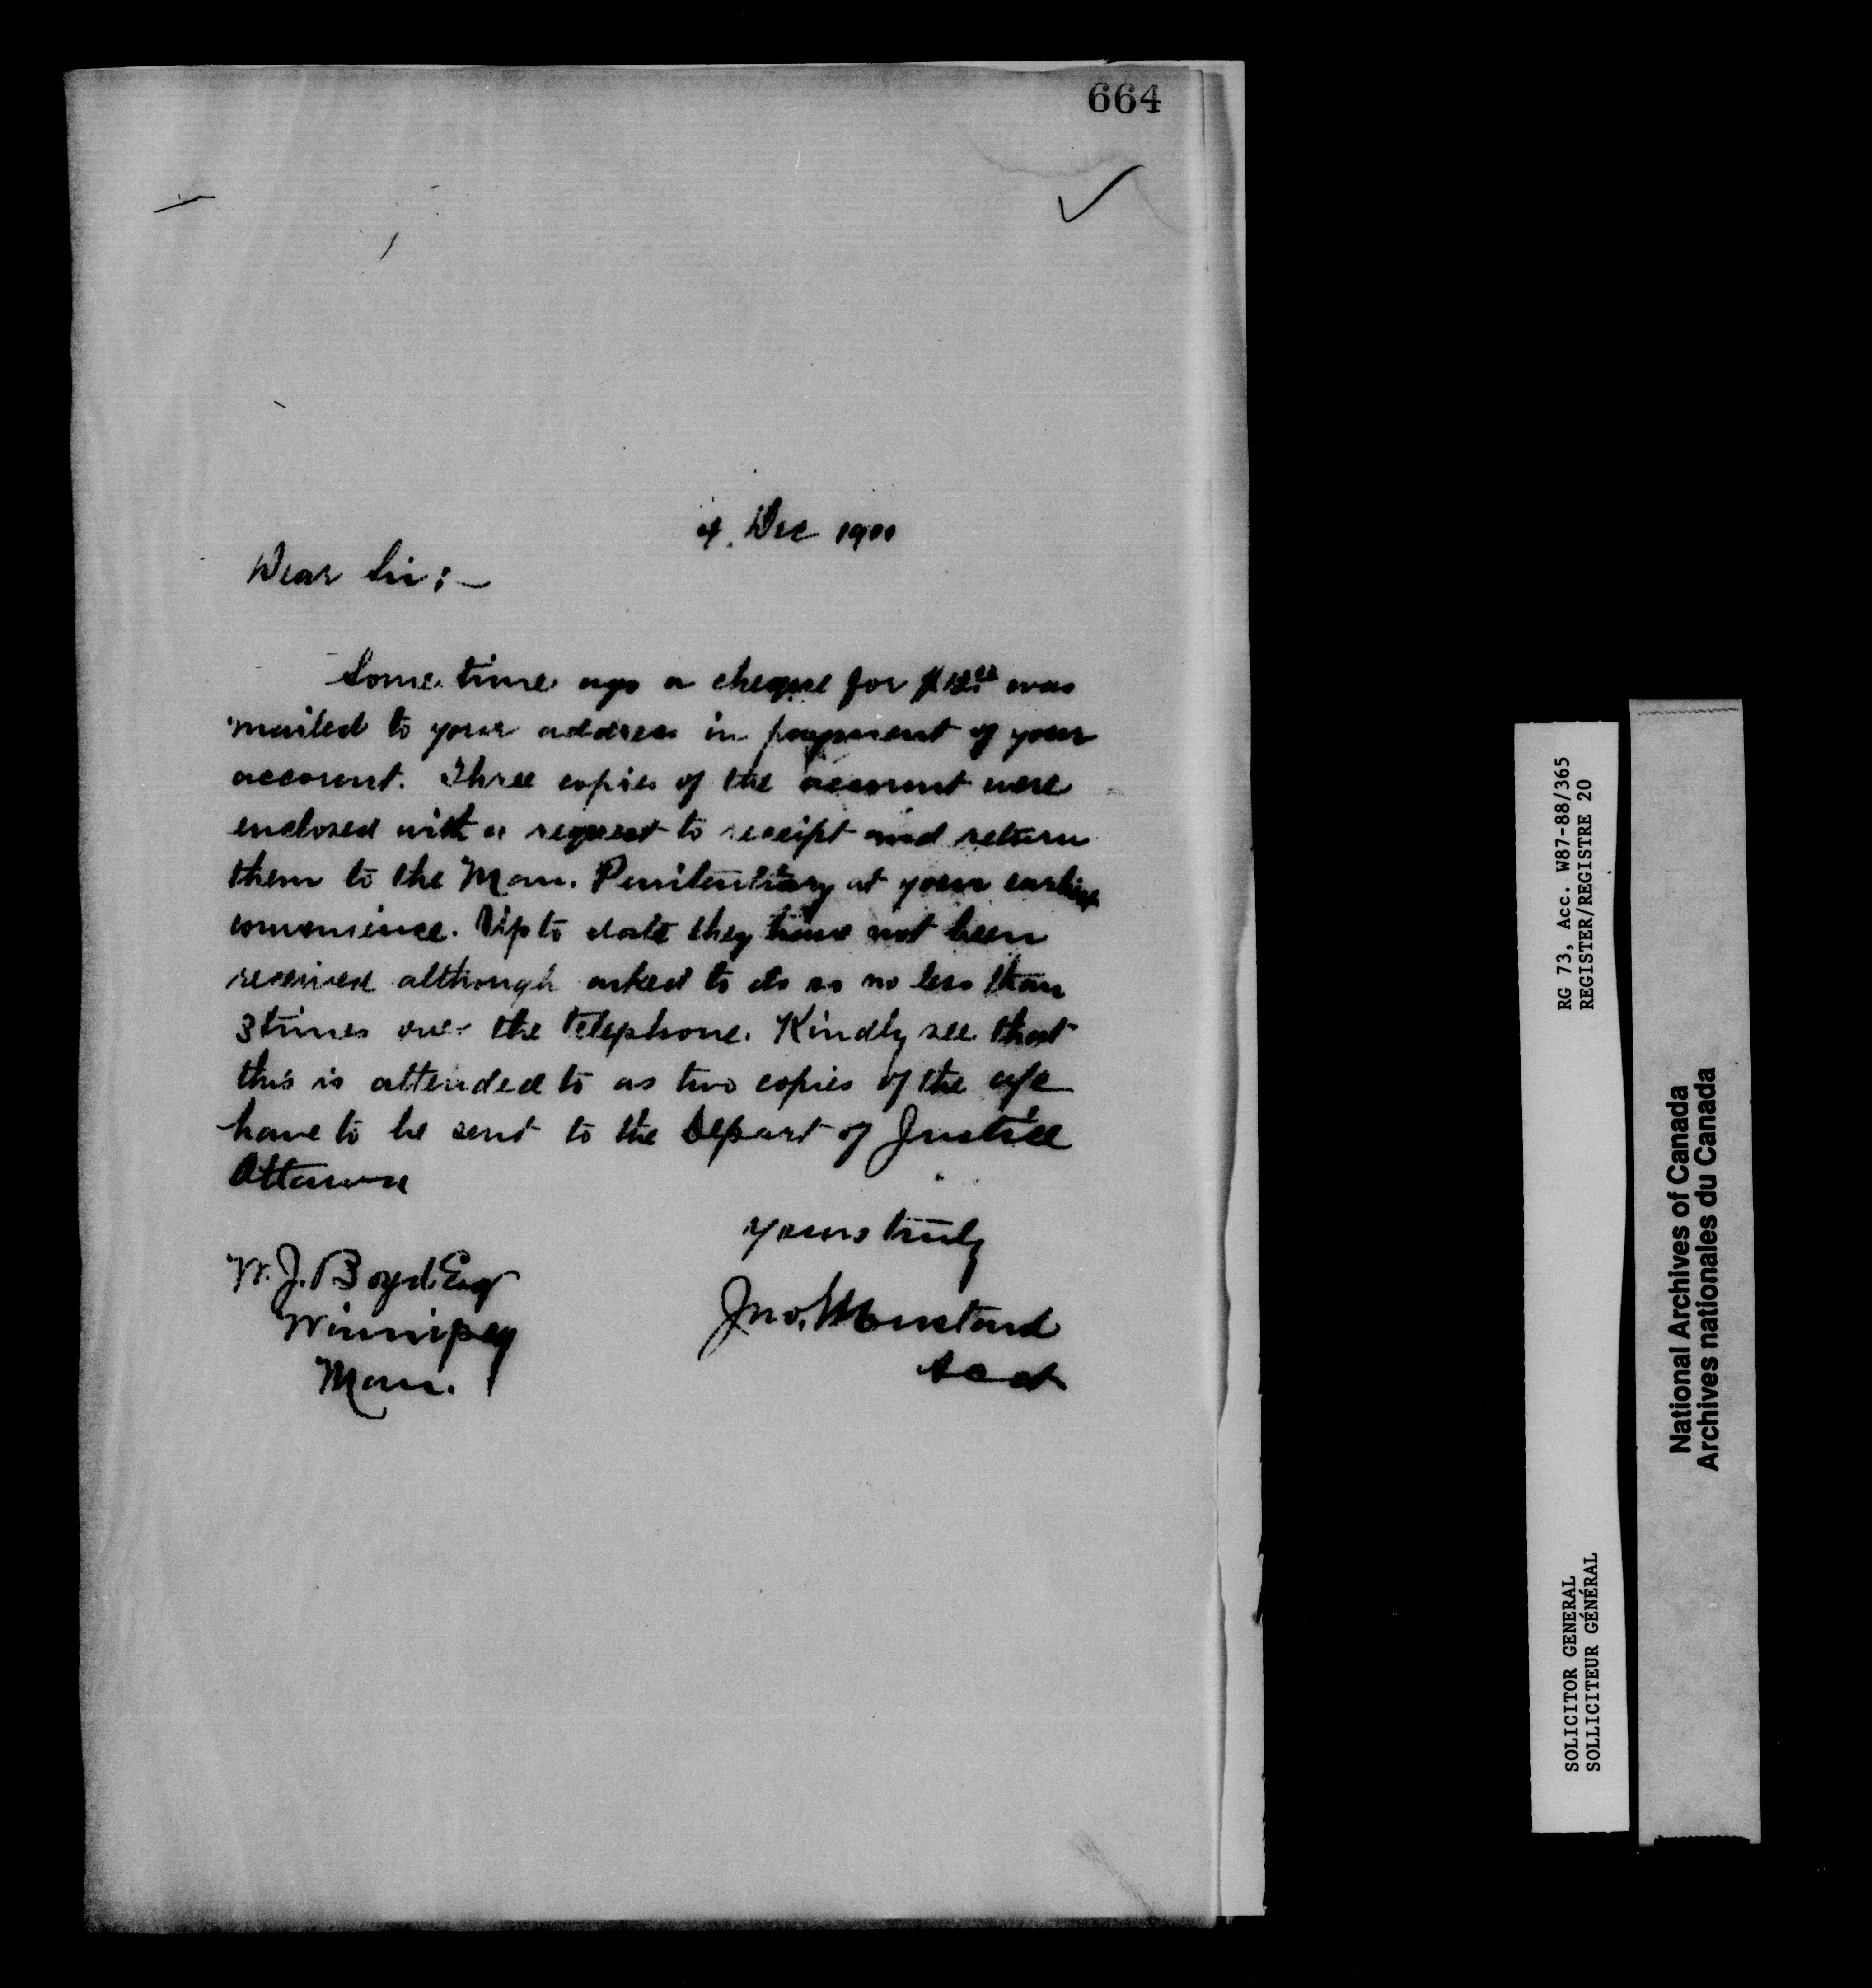 664
4. Dec 1900
Dear Sir:—
Some time ago a cheque for was
mailed to your address in payment of your
account. Three copies of the account were
enclosed with a request to receipt and return
them to the Man. Penitentiary at your earliest
convenience. Up to date they have not been
received although asked to do so no less than
3 times over the telephone. Kindly see that
this is attended to as two copies of the a/c
have to be sent to the Depart of Justice
Ottawa
Yours truly
W. J. Boyd Esq
Winnipeg
Man.
Jno. Mustard
Acct
RG 73, Acc. W87-88/365
REGISTER/REGISTRE 20
SOLICITOR GENERAL
SOLLICITEUR GÉNÉRAL
National Archives of Canada
Archives nationales du Canada